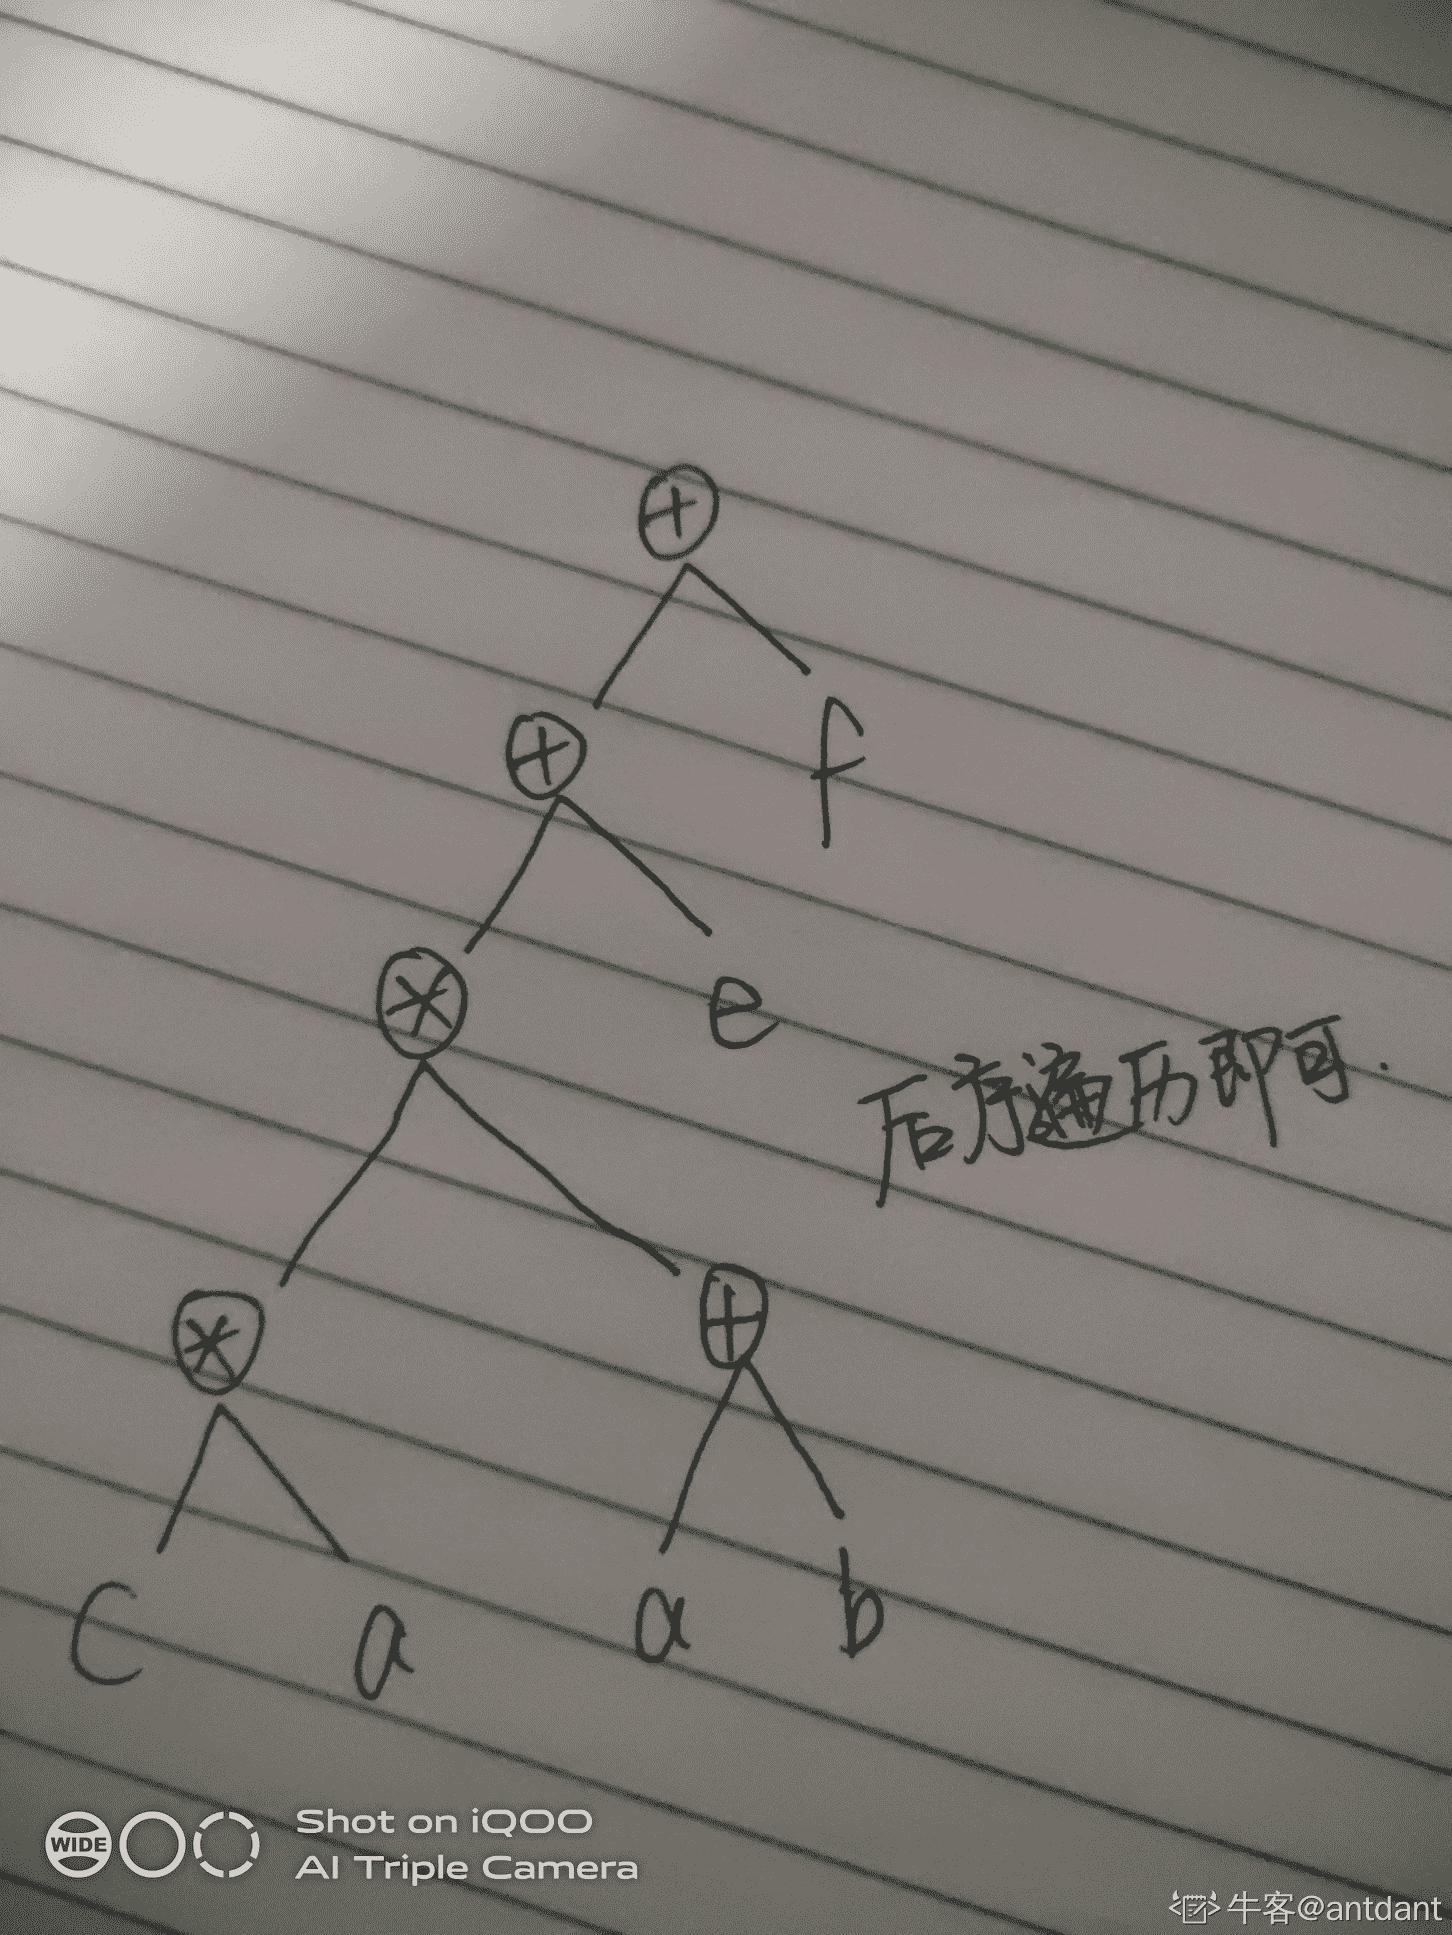 +
+
f
*
e
后序遍历即可.
*
+
C
a
a
b
WIDE
Shot on iQOO
AI Triple Camera
牛客@antdant